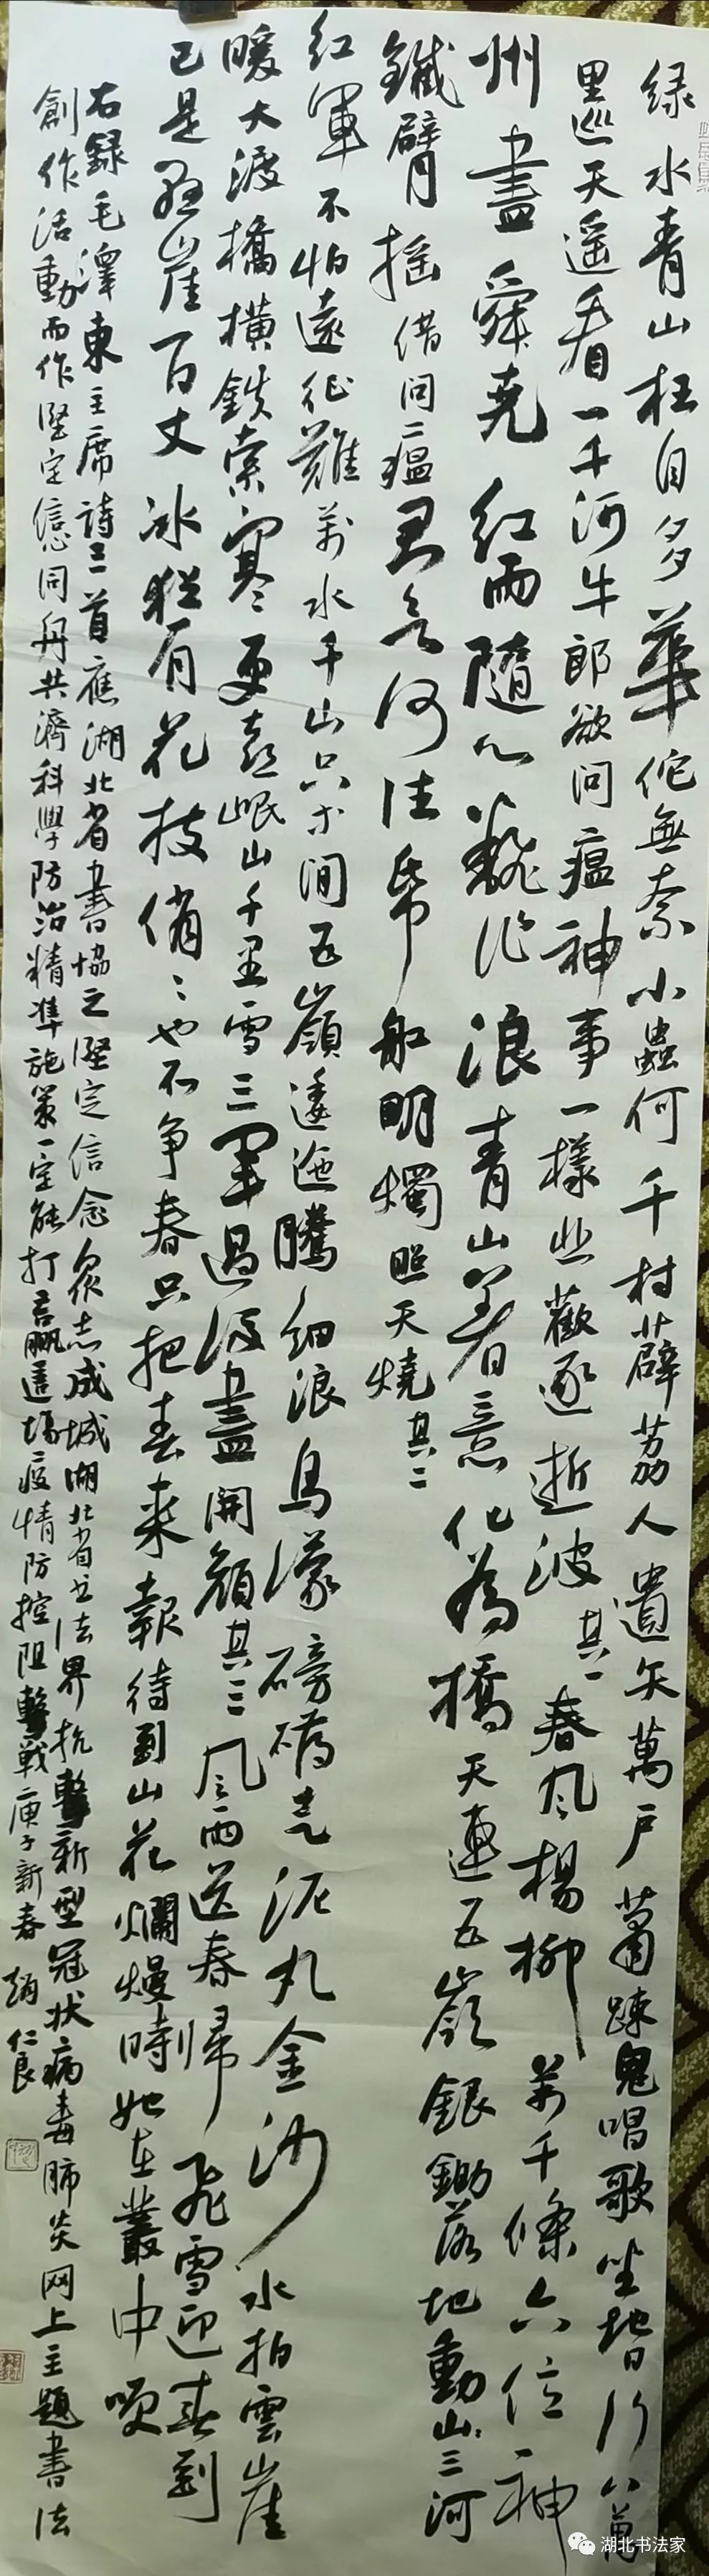 绿水青山枉自多華佗無奈小蟲何千村薜荔人遺矢萬户蕭疎鬼唱歌坐地日行八萬
里巡天遥看一千河牛郎欲问瘟神事一樣悲歡逐逝波其一春风楊柳萬千條六億神
州盡舜尧红雨隨心飜作浪青山着意化為橋天連五嶺銀鋤落地動山三河
鐵臂摇借问瘟君欲何往紙船明燭照天燒其二
红軍不怕遠征難萬水千山只等间五嶺逶迤騰細浪烏濛磅礴走泥丸金沙水拍雲崖
暖大渡橋横鉄索寒更喜岷山千里雪三軍過後盡開颜其三风雨送春歸飛雪迎春到
已是懸崖百丈冰犹有花枝俏俏也不争春只把春来報待到山花爛熳時她在叢中咲
右録毛澤東主席詩三首應湖北省書協之堅定信念衆志成城湖北省书法界抗擊新型冠状病毒肺炎网上主題書法
創作活動而作堅定信心同舟共濟科學防治精準施策一定能打赢這場疫情防控阻擊戰庚子新春 仁良
湖北书法家